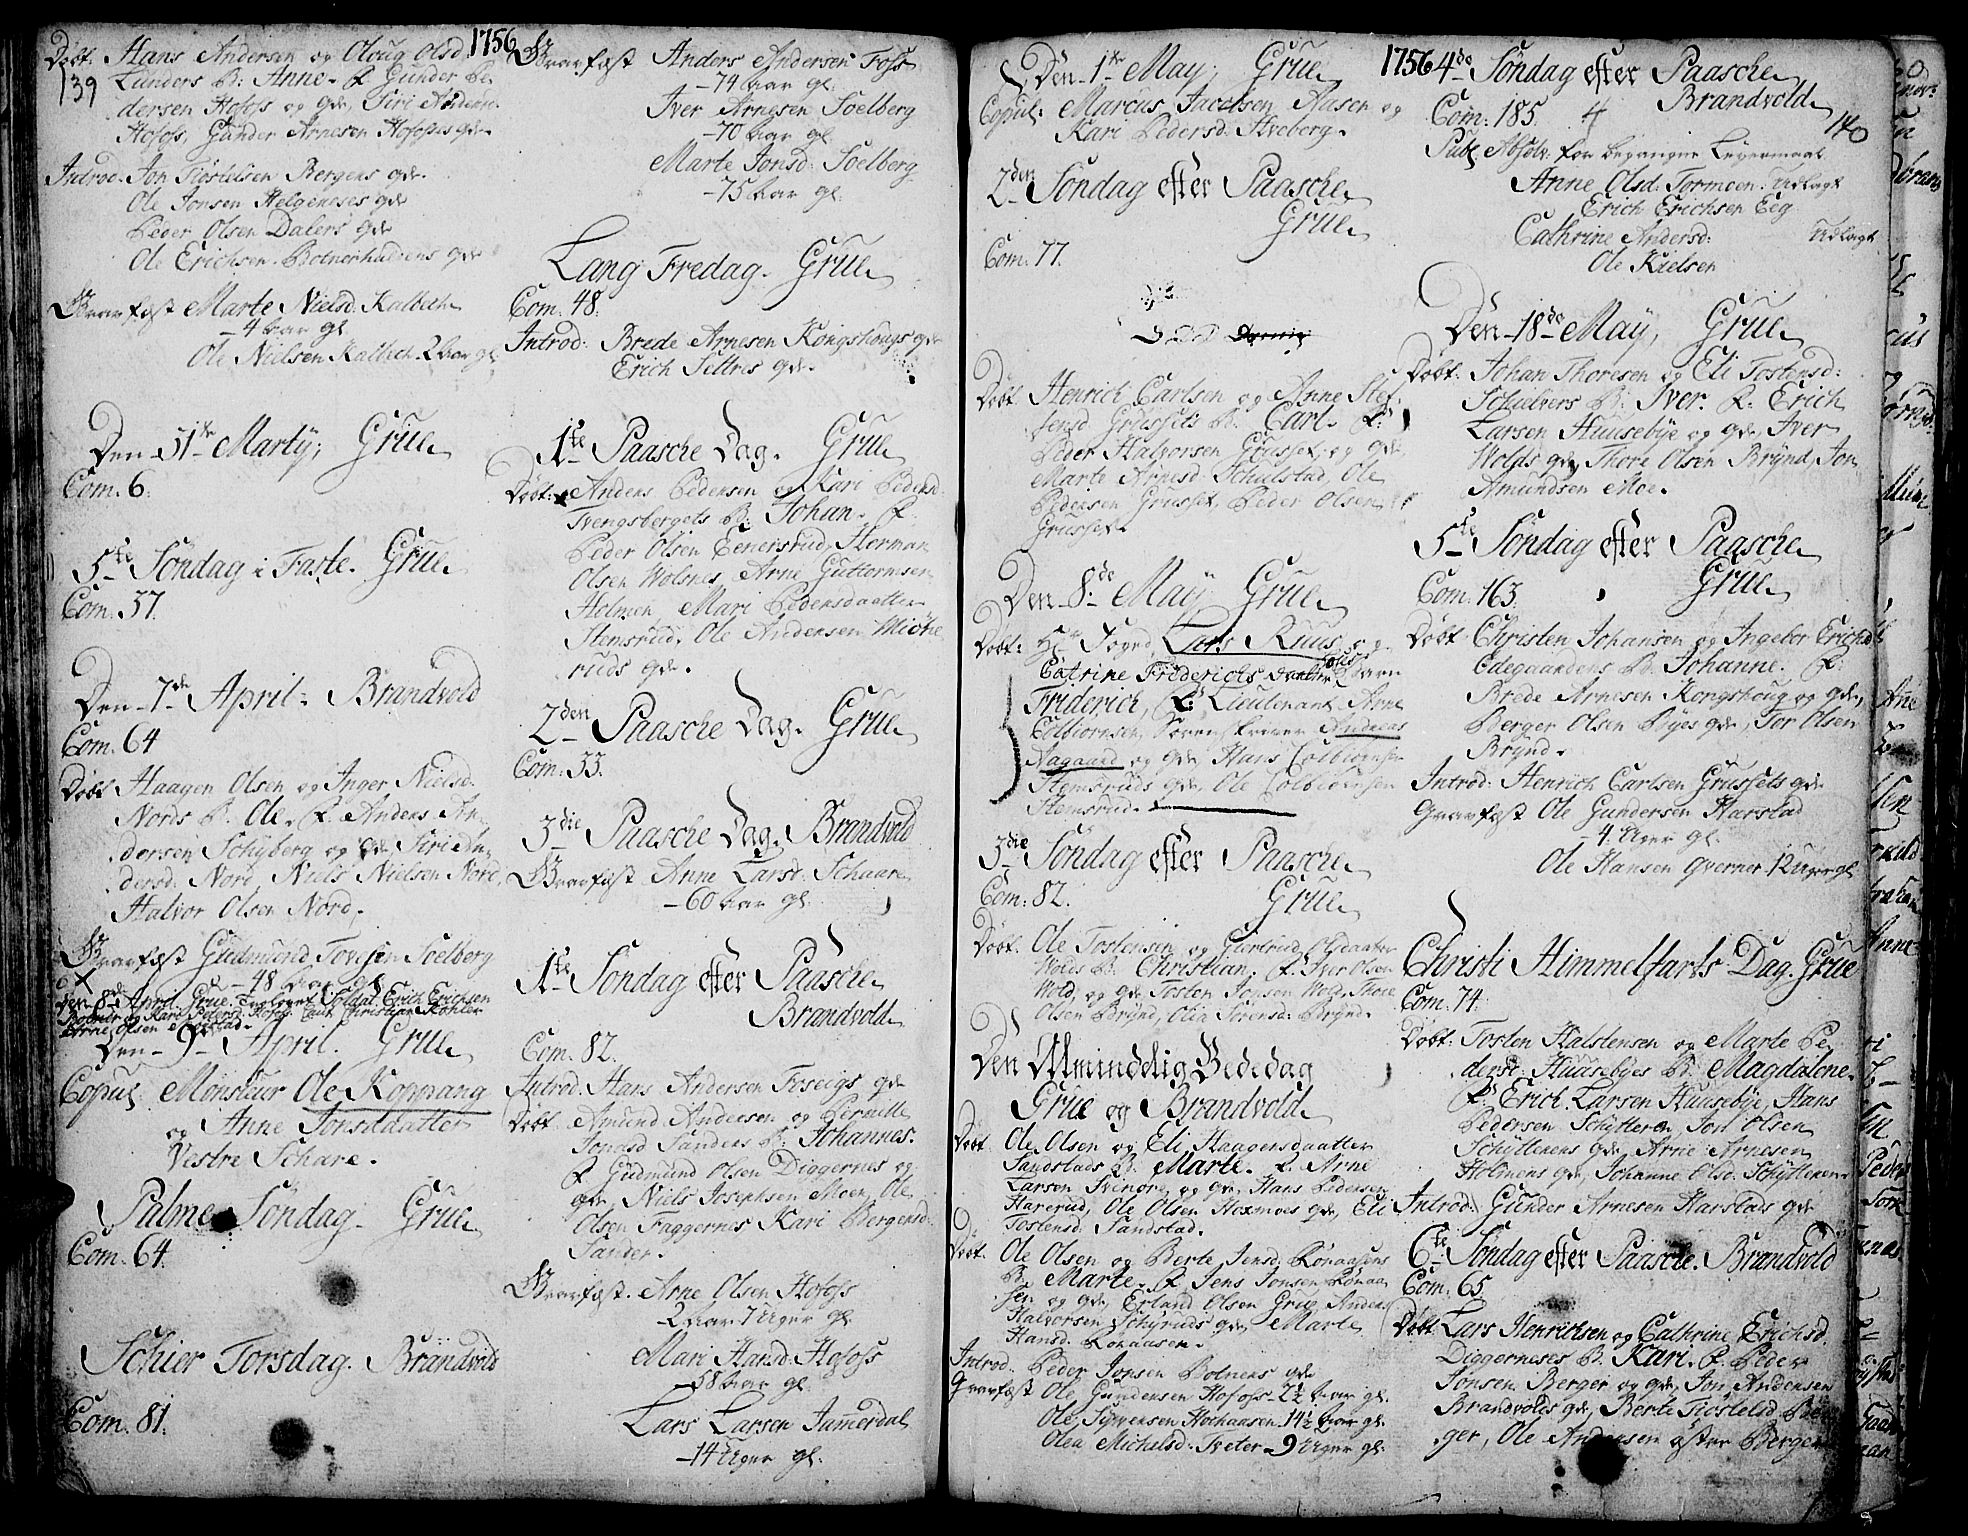 1756
139
Døbt. Hans Andersen og Oloug Olsd.
Lunders B: Anne. F. Gunder Pe-
dersen Hofoss og qde, Siri Anders.
Hofoss, Gunder Arnesen Hofosses qde
Introd. Jon Tiostelsen Bergens qde.
Ole Jonsen Helgeneses qde
Peder Olsen Dalers qde
Ole Erichsen qde
Gravfæst Marte Nielsd. Kalbech
-4 aar gl.
Ole Nielsen Kalbech. 2 aar gl.
Den 31te Martÿ; Grue
Com. 6.
5te Söndag i Faste. Grue
Com. 37.
Den 7de April. Brandvold
Com. 64
Døbt Haagen Olsen og Inger Nielsd.
Nords B. Ole. F. Anders An-
dersen Schÿberg og qde Siri An-
dersd. Nord, Niels Nielsen Nord,
Halvor Olsen Nord.
Gravfæst Gudmund Tovesen Soelberg
-48 aar gl.
den 8de April Grue. Trolovet Soldat Erich Erichsen
og Kari Pedersd. Hofoss. Caut. Christian Köhler
Arne Olsen
Den 9de April. Grue
Copul. Monsieur Ole Koppang
og Anne Jonsdatter
Vestre Schare.
Palme Söndag. Grue
Com. 64.
Schier Torsdag. Brandvold
Com. 81.
Gravfæst Anders Andersen Foss
-74 aar gl.
Iver Arnesen Soelberg
-70 aar gl.
Marte Jonsd. Soelberg
-75 aar gl.
Lang Fredag. Grue
Com. 48.
Introd: Brede Arnesen Kongshougs qde
Erich Settres qde.
1te Paasche Dag. Grue
Døbt: Anders Pedersen og Kari Pedersd.
Tvengsbergets B: Johan. F.
Peder Olsen Eenersrud, Herman
Olsen Wolsnes, Arne Guttormsen
Holmen, Mari Pedersdaatter
Stemsrud. Ole Andersen Miöte
ruds qde.
2den Paasche Dag. Grue
Com: 33.
3die Paasche Dag. Brandvold
Gravfæst Anne Larsd. Schaare
-60 aar gl.
1te Söndag efter Paasche
Brandvold
Com. 82.
Introd. Hans Andersen Foseigs qde
Døbt. Amund Andersen og Pernille
Jonsd Sanders B: Johannes.
F. Gudmund Olsen Diggernes og
qde, Niels Josephsen Moen, Ole
Olsen Faggernes Kari Bergersd.
Sander.
Gravfæst. Arne Olsen Hofoss
-2 aar 7 Uger gl.
Mari Hansd. Hofoss
-58 aar gl.
Lars Larsen Jammerdal
-14 Uger gl.
Den 1te May; Grue
Copul: Marcus Jacobsen Aasen og
Kari Pedersd. Hveberg.
2den Söndag efter Paasche
Grue
Com. 77.
Døbt. Henrich Carlsen og Anne Stef-
fensd Grussets B. Carl. F.
Peder Halvorsen Grusset, og qde,
Marte Arnesd. Schulstad, Ole
Pedersen Grusset, Peder Olsen
Grusset.
Den 8de Maÿ Grue
Døbt: Hr. Foged Lars Ruus og
Catrine Friderichs daatter Barn
Friderich, F: Lieutenant Arne
Colbiornsen, Sorenskriver Andreas
Aagaard og qde, Hans Colbiornsen
Stemsruds qde, Ole Colbiornsen
Stemsrud.
3die Söndag efter Paasche
Com: 82. Grue
Døbt. Ole Tostensen og Giertrud Olsdaatter
Wolds B. Christian. F. Iver Olsen
Wold, og qde Tosten Jonsen Wold, Thore
Olsen Brÿnd, Olia Torensd. Brÿnd.
Den Alminddlig Bededag
Grue og Brandvold
Døbt. Ole Olsen og Eli Haagensdaatter
Sandstads B. Marte. F. Arne
Larsen Svenörg og qde, Hans Pedersen
Harerud, Ole Olsen Hoxmoes qde, Eli
Tostensd. Sandstad.
Døbt. Ole Olsen og Berte Jensd. Rönaasens
B. Marte. F. Jens Jonsen Rönaa-
sen og qde, Erland Olsen Grue, Anders
Halvorsen Schÿruds qde, Marte
Hansd. Rönaasen.
Introd. Peder Jonsen Bolnens qde
Gravfæst Ole Gundersen Hofoss- 2½ aar gl.
Ole Syversen Hochaasen. 14½ aar gl.
Olea Michelsd. Tveter - 9 Uger gl.
1756
140
4de Söndag efter Paasche
Brandvold
Com: 185.
Publ. Absolv. for begangne Leyermaal
Anne Olsd. Tormoen. Udlagt
Erich Erichsen Eeg
Cathrine Andersd: Udlagt
Ole Kielsen
Den 18de Maÿ, Grue
Døbt. Johan Thoresen og Eli Tostensd:
Schulvers B: Iver. F. Erich
Larsen Huusebÿe og qde, Iver
Wolds qde, Thore Olsen Brÿnd, Jon
Amundsen Moe.
5te Söndag efter Paasche
Com. 163. Grue
Døbt Christen Johansen og Ingebor Erichsd
Ödegaardens B. Johanne. F.
Brede Arnesen Kongshoug og qde,
Berger Olsen Byes qde, Tor Olsen
Brÿnd.
Introd: Henrich Carlsen Grussets qde
Gravfæst Ole Gundersen Harstad
-4 Uger gl.
Ole Hansen Qverner - 12 Uger gl.
Christi Himmelfarts Dag. Grue
Com. 74.
Døbt: Tosten Halstensen og Marte Pe-
dersd. Huusebÿes B. Magdalene.
F. Erich Larsen Huusebÿe, Hans
Pedersen Schÿtteren, Jon Olsen
Schÿttenens qde, Arne Arnesen
Holmens qde, Johanne Olsd. Schÿtteren.
Introd: Gunder Arnesen Harstads qde
6te Söndag efter Paasche. Brandvold
Com. 65.
Døbt Lars Henrichsen og Cathrine Erichsd.
Diggerneses B. Kari. F. Peder
Jonsen Berger og qde, Jon Andersen
Brandvolds qde, Berte Tiostelsd. Ber-
ger, Ole Andersen östre Berger